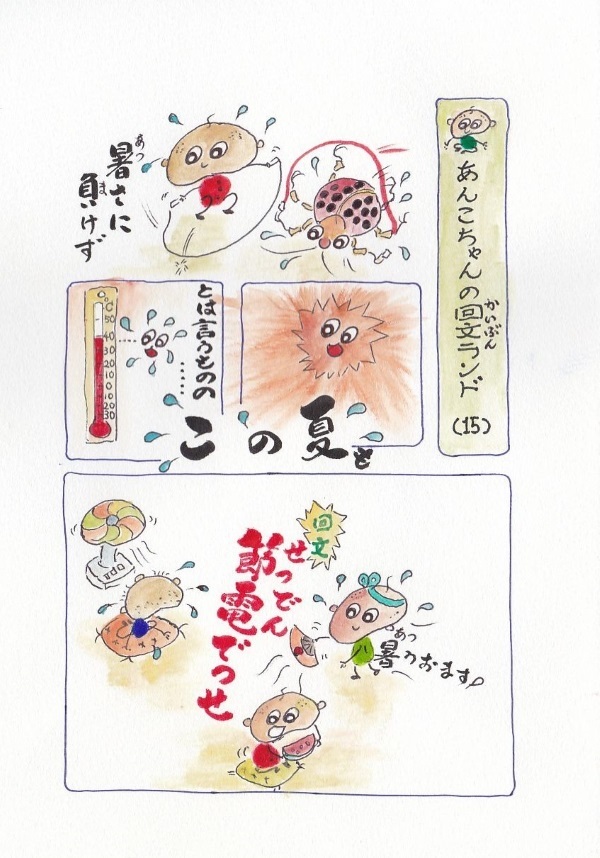 あんこちゃんの回文ランド
かいぶん
(15)
暑さに
あつ
負けず
ま
とは言うものの……
°C
50
40
30
20
10
0
10
20
30
この夏も
回文
せつでん
節電でっせ
あつ
暑うおます